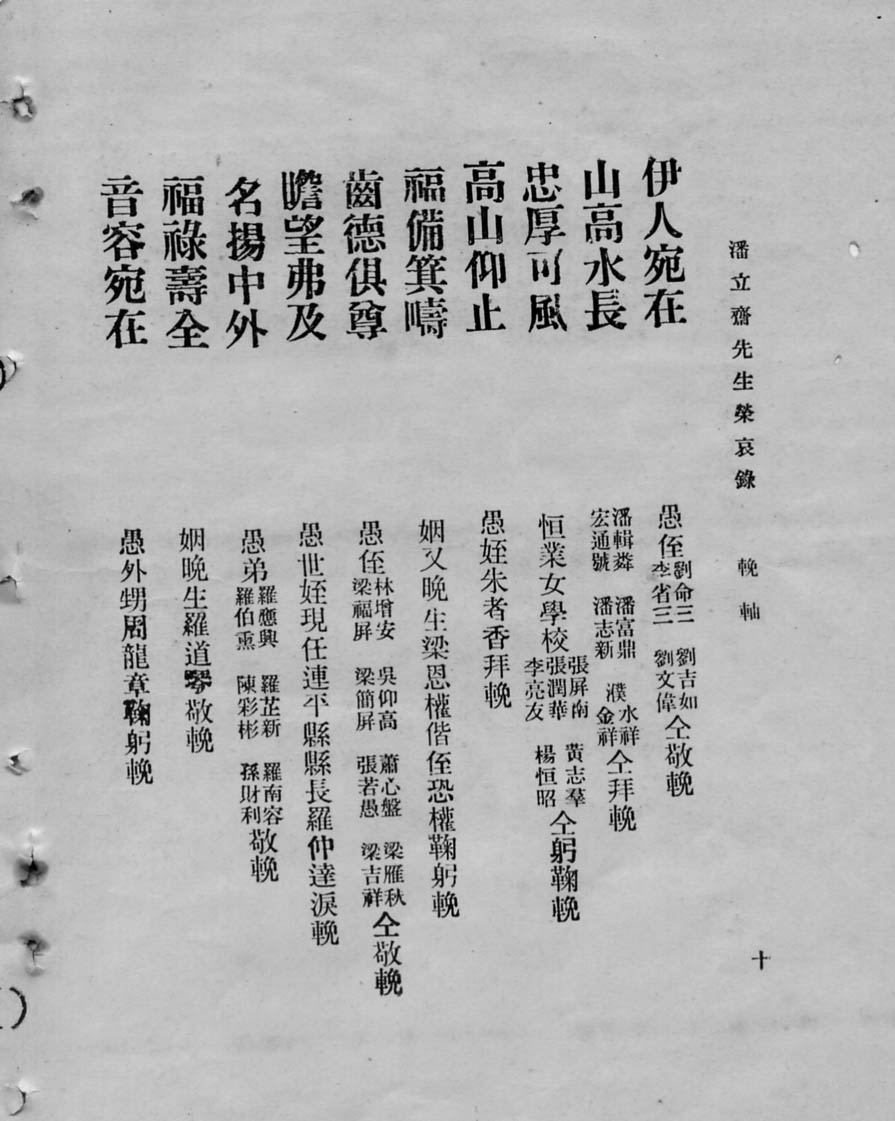 潘立齋先生榮哀錄 輓軸 十
伊人宛在 愚侄劉命三 劉吉如 李省三 劉文偉 仝敬輓
山高水長 潘輯粦 潘富鼎 濮水祥 宏通號 潘志新 金祥 仝拜輓
忠厚可風 恒業女學校 張屏南 張潤華 黃志羣 李亮友 楊恒昭 仝躬鞠輓
高山仰止 愚姪朱者香拜輓
福備箕疇 姻乂晚生梁恩權偕侄恐權鞠躬輓
齒德俱尊 愚侄林增安 吳仰高 蕭心盤 梁雁秋 梁福屏 梁簡屏 張若愚 梁吉祥 仝敬輓
瞻望弗及 愚世姪現任連平縣縣長羅仲達淚輓
名揚中外 愚弟羅應興 羅芷新 羅南容 羅伯熏 陳彩彬 孫財利 敬輓
福祿壽全 姻晚生羅道琴敬輓
音容宛在 愚外甥周龍章鞠躬輓